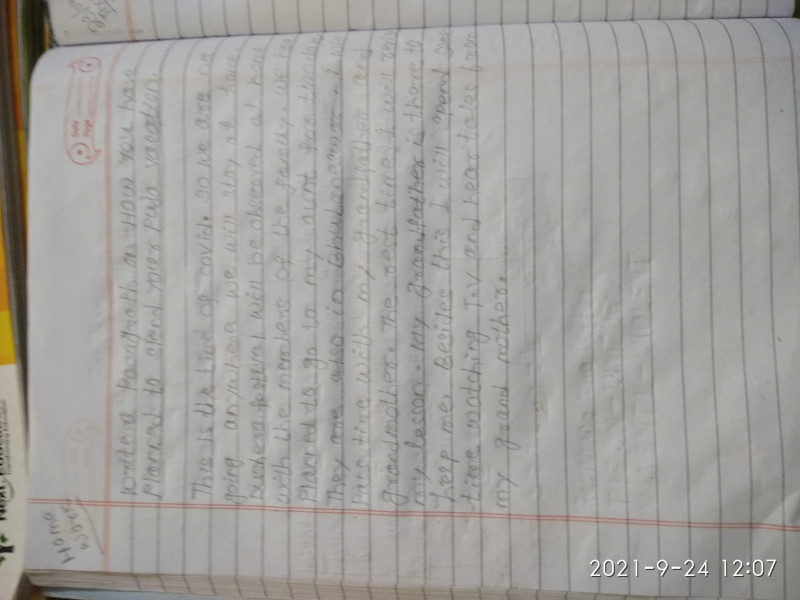 Home
Work
Date
Page
Write a Paragraph on How you have
Planed to spend your Puja vacation.
This is the time of covid. so we are no
going anywhere we will stay at home.
festival will be observed at home
with the members of the family. we have
Planned to go to my aunt for
They are also in Bhubaneswar. I will
Pass time with my grandfather and
grandmother. The rest time I will
my lesson. My grandfather is there to
help me. Besides this I will spend
time watching T.V and hear tales from
my grand mother.
Next Education
2021-9-24 12:07